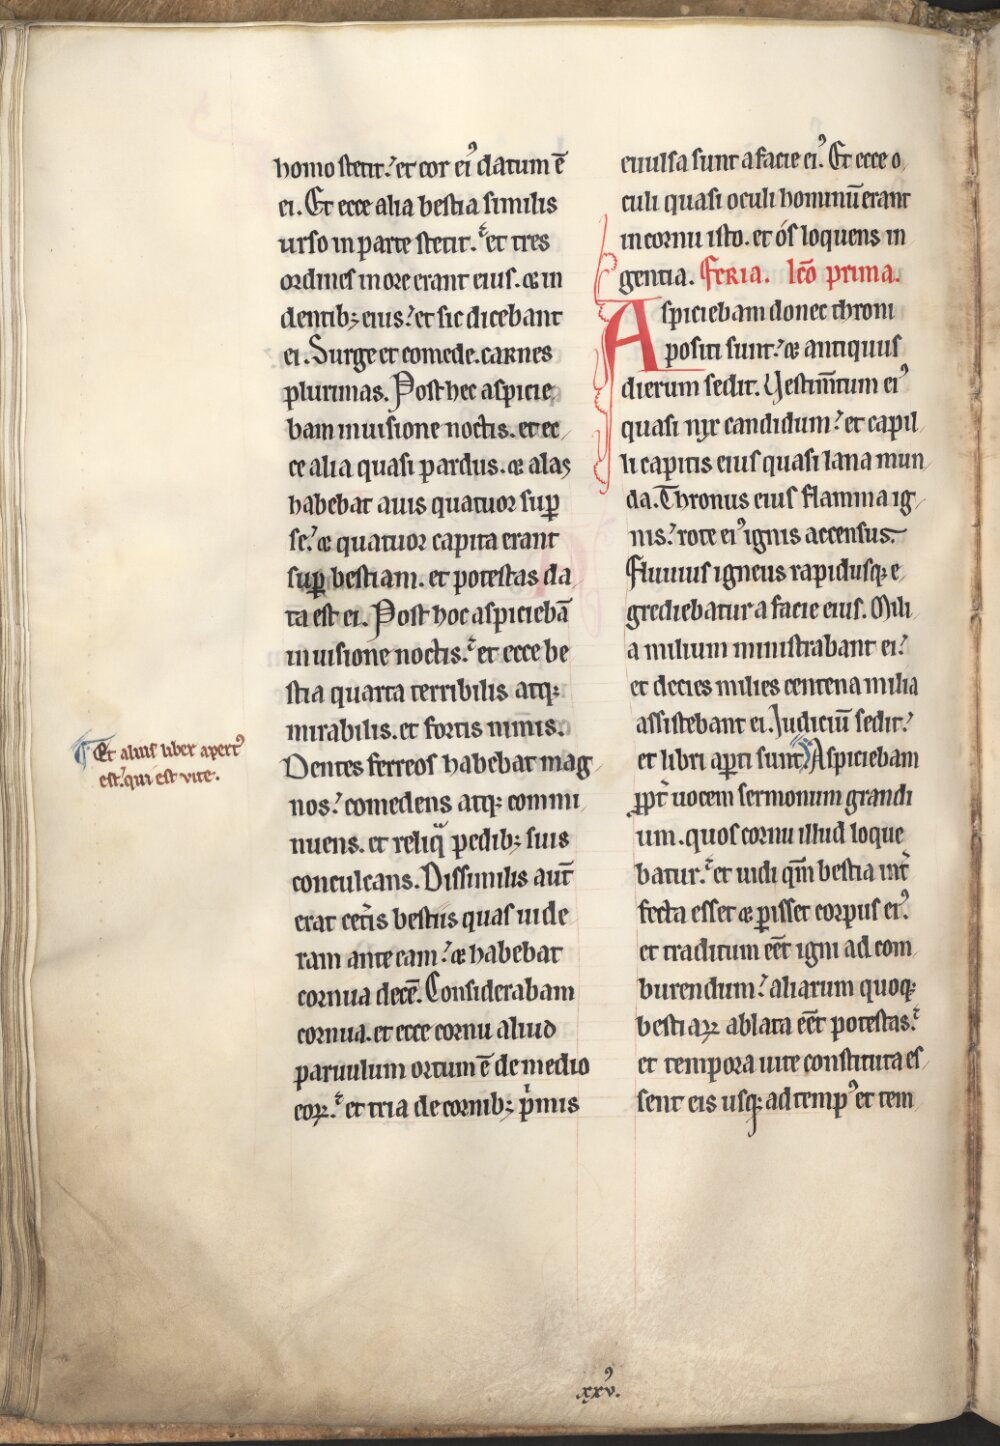 homo stetit. et cor ei᾿ datum ē
ei. Et ecce alia bestia similis
urso in parte stetit. et tres
ordines in ore erant eius. & in
dentib; eius. et sic dicebant
ei. Surge et comede. carnes
plurimas. Post hec aspicie
bam in uisione noctis. et ec
ce alia quasi pardus. & alas
habebat auis quatuor sup̄
se. & quatuor capita erant
sup̄ bestiam. et potestas da
ta est ei. Post hoc aspiciebā
in uisione noctis. et ecce be
stia quarta terribilis atq;
mirabilis. et fortis nimis.
Dentes ferreos habebat mag
nos. comedens atq; commi
nuens. et reliq̈ pedib; suis
conculcans. Dissimilis aut̄
erat cet̄is bestiis quas uide
ram ante eam. & habebat
cornua decē. Considerabam
cornua. et ecce cornu aliud
paruulum ortum ē de medio
eoꝝ. et tria de cornib; p̍mis
Et alius liber apert᾿
est. qui est vite.
euulsa sunt a facie ei᾿. Et ecce o
culi quasi oculi hominū erant
in cornu isto. et ós loquens in
gentia. Feria. lcō prima.
Aspiciebam donec throni
positi sunt. & antiquus
dierum sedit. Uestim̄tum ei᾿
quasi nix candidum. et capil
li capitis eius quasi lana mun
da. Thronus eius flamma ig
nis. rote ei᾿ ignis accensus.
Fluuius igneus rapidusq; e
grediebatur a facie eius. Mili
a milium ministrabant ei.
et decies milies centena milia
assistebant ei. Judiciū sedit.
et libri ap̄ti sunt. Aspiciebam
ꝓpt̄ uocem sermonum grandi
um. quos cornu illud loque
batur. et uidi qm̄ bestia int̄
fecta esset & ꝑisset corpus ei᾿.
et traditum eēt igni ad com
burendum. aliarum quoq;
bestiaꝝ ablata eēt potestas.
et tempora uite constituta es
sent eis usq; ad temp᾿ et tem
xxv᾿.